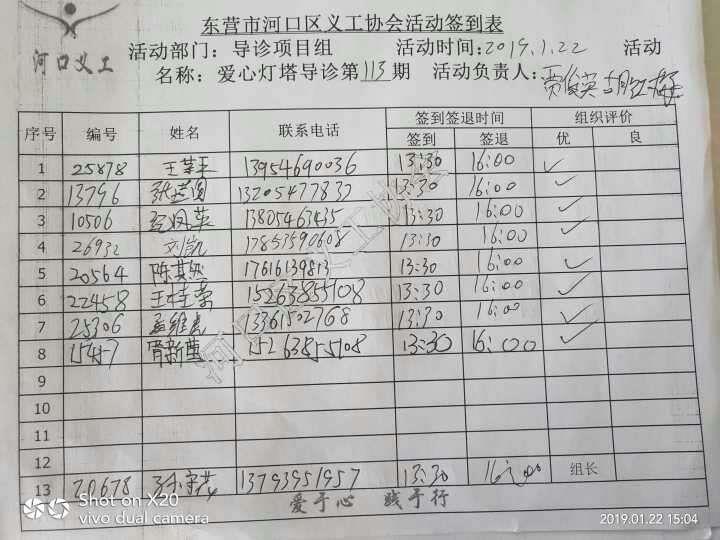 东营市河口区义工协会活动签到表
河口义工
活动部门：导诊项目组 活动时间:2019.1.22 活动
名称：爱心灯塔导诊第113期 活动负责人:贾俊英
序号 编号 姓名 联系电话 签到签退时间 组织评价
签到 签退 优 良
1 25878 13954690036 13:30 16:00 ✓
2 13796 13205477837 13:30 16:00 ✓
3 10506 13805463435 13:30 16:00 ✓
4 26932 刘凯 17853590608 13:30 16:00 ✓
5 20564 陈其 17616139813 13:30 16:00 ✓
6 22458 王桂荣 15263855108 13:30 16:00 ✓
7 25306 孟维 13361502768 13:30 16:00 ✓
8 15457 15263855108 13:30 16:00 ✓
9
10
11
12
13 20678 13793951957 13:30 16:00 组长
爱于心 践于行
Shot on X20
vivo dual camera
2019.01.22 15:04